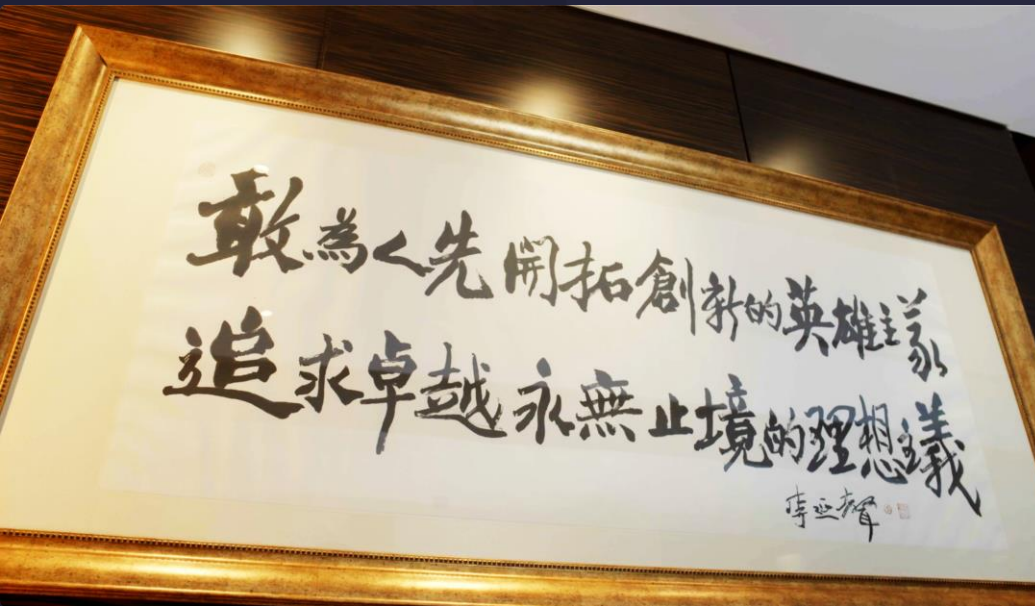 敢為人先開拓創新的英雄主義
追求卓越永無止境的理想主義
李亞聲